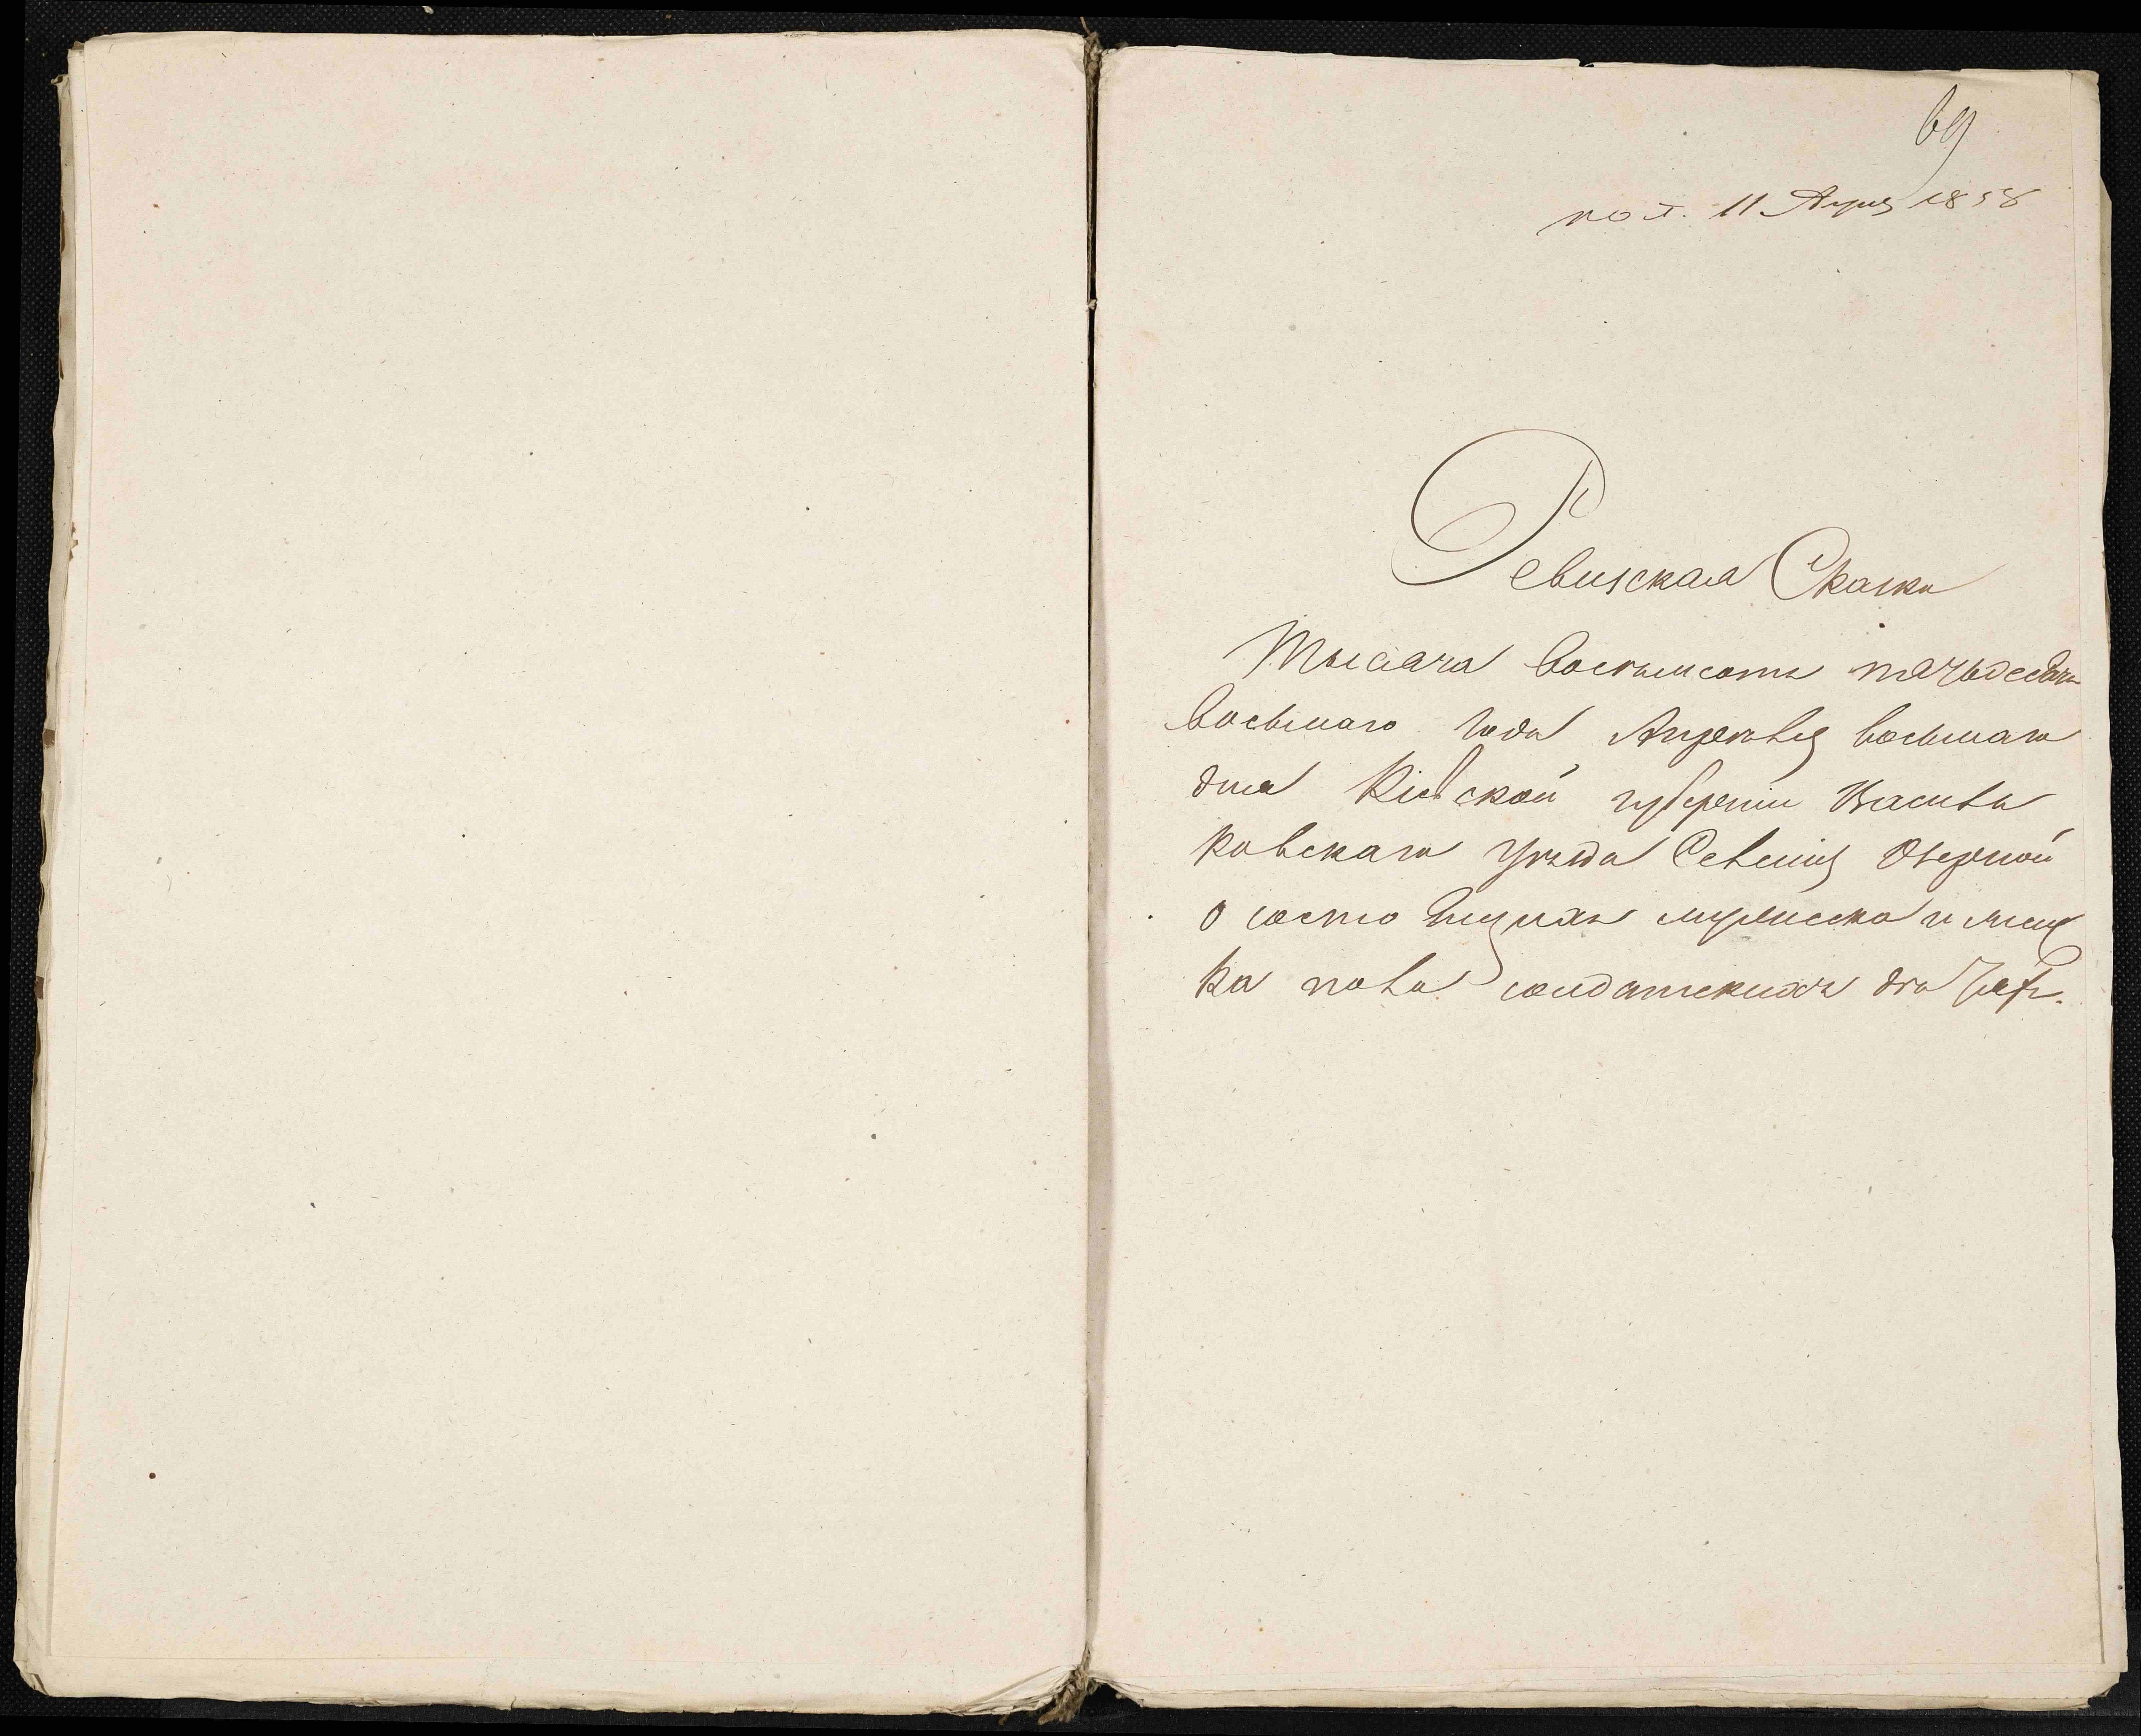 69
пол. 11 Апреля 1858
Ревизская Сказка
Тысяча восемьсотъ пятьдесятъ
восьмаго года Апреля восьмаго
дня Кіевской губерніи Василь
ковскаго уѣзда Селенія Озерной
о состоящихъ мужеска и женс
ка пола солдатскихъ